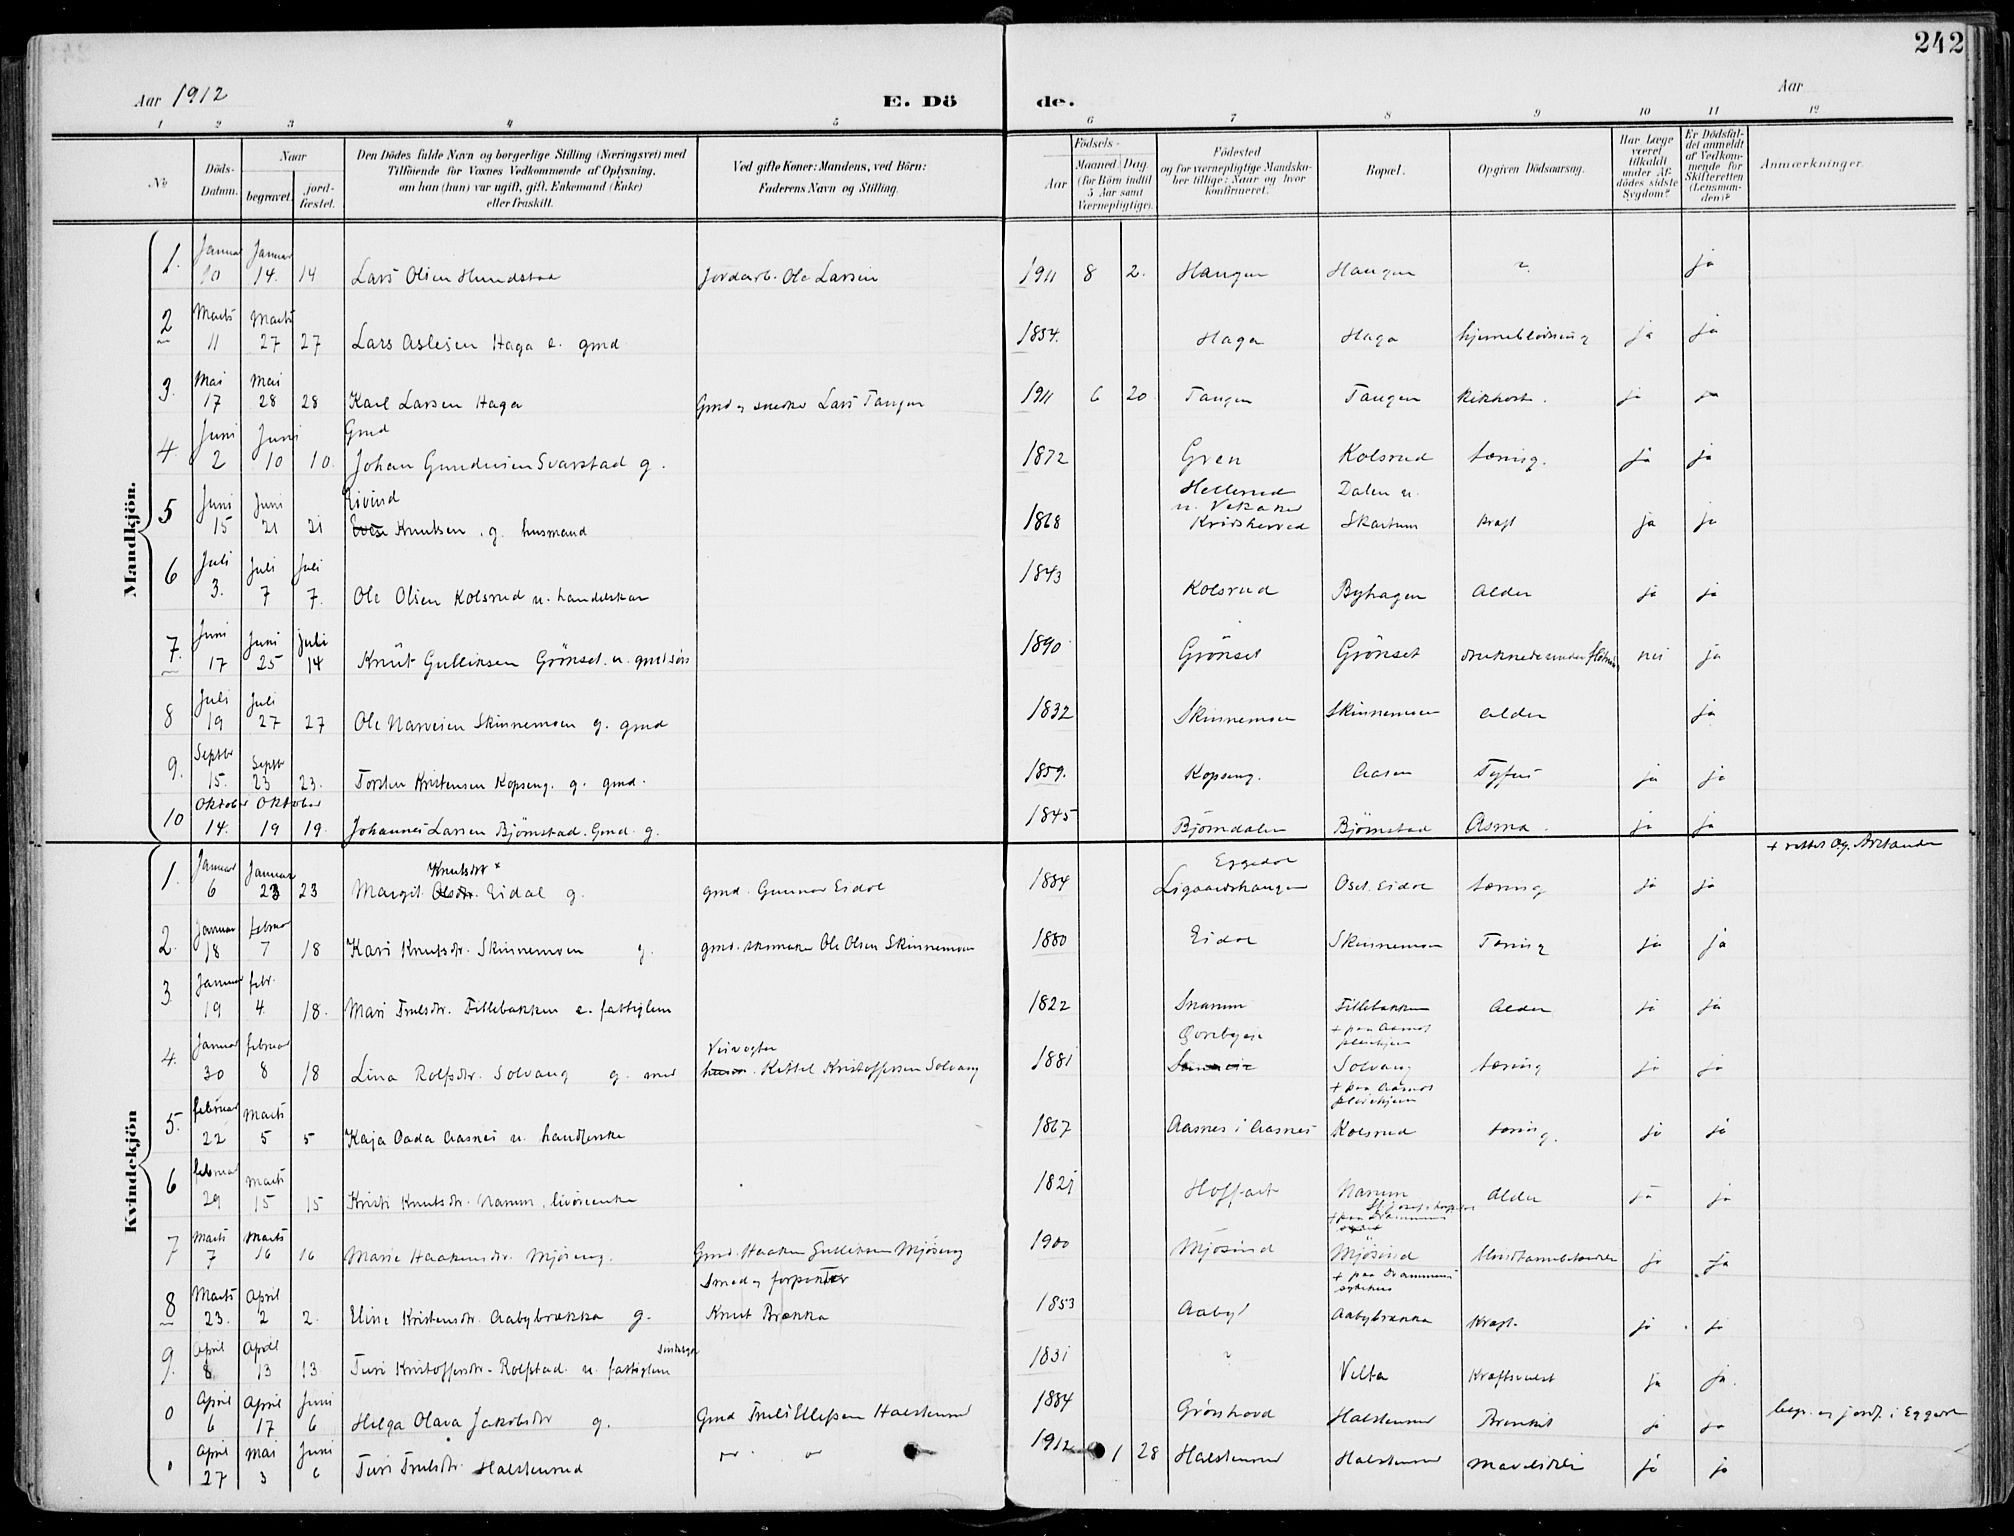 242
Aar 1912
E. Dö
de.
Aar
1 2 3 4 5 6 7 8 9 10 11 12
No
Döds-Datum.
Naar
begravet.
jord-fæstet.
Den Dödes fulde Navn og borgerlige Stilling (Næringsvei) med
Tilföiende for Voxnes Vedkommende af Oplysning,
om han (hun) var ugift, gift, Enkemand (Enke)
eller fraskilt.
Ved gifte Koner: Mandens, ved Börn:
Faderens Navn og Stilling.
Födsels-
Aar
Maaned Dag
(for Börn indtil
5 Aar samt
Værnepligtige).
Födested
og for værnepligtige Mandska-
ber tillige: Naar og hvor
konfirmeret.
Bopæl.
Opgiven Dödsaarsag.
Har Læge
været
tilkaldt
under Af-
dödes sidste
Sygdom?
Er Dödsfal-
det anmeldt
af Vedkom-
mende for
Skifteretten
(Lensman-
den)?
Anmærkninger.
Mandkjön.
1. Januar 10 Januar 14. 14 Lars Olsen Hundstad Jordarb. Ole Larsen 1911 8 2. Haugen Haugen ? ja
2 Marts 11 Marts 27 27 Lars Aslesen Haga e. gmd 1854. Haga Haga hjerneblødning ja ja
3. Mai 17 Mai 28 28 Karl Larsen Haga Gmd og snedker Lars Tangen 1911 6 20 Tangen Tangen Kikhoste. ja ja
4 Juni 2 Juni 10 10. Gmd
Johan Gundersen Svarstad g. 1872 Gren Kolsrud tæring. ja ja
5 Juni 15 Juni 21 21 Eivind
Knutsen . g. husmand 1868 Hellerud
Kridsherred Dalen u.
Skartum Kræft ja ja
6 Juli 3. Juli 7 Juli 7. Ole Olsen Kolsrud u. handelskar 1843 Kolsrud Byhagen Alder ja ja
7. Juni 17 Juni 25 Juli 14 Knut Gulliksen Grönset. u. gmdsøn 1890 Grönset Grönset druknede under flötning nei ja
8 Juli 19 Juli 27 27 Ole Narvesen Skinnemoen g. gmd 1832 Skinnemoen Skinnemoen Alder ja
9. Septbr 15. Septbr 23 23. Torsten Kristensen Kopseng. g. gmd. 1859. Kopseng. Aasen Tyfus ja ja
10 Oktober 14. Oktober 19 19. Johannes Larsen Björnstad. Gmd. g. 1845 Björndalen Björnstad Asma. ja ja
Kvindekjön
+ rettet Og. Arstander
1. Januar 6 Januar 23 23 Knutsdtr +
Margit Olsdtr. Eidal g. gmd. Gunnar Eidal 1884 Eggedal
Ligaardshaugen Oset. Eidal tæring ja ja
2. Januar 18 Februar 7 18 Kari Knutsdtr. Skinnemoen g. gmd. skomaker Ole Olsen Skinnemoen 1880 Eidal Skinnemoen Tæring ja ja
3. Januar 19 febr. 4. 18. Mari Trulsdtr. Tillebakken e. fattiglem 1822 Snarum Tillebakken Alder ja ja
+ paa Aasnes
pleiehjem
4. Januar 30 februar 8 18 Lina Rolfsdtr. Solvang g. med Veivogter
Kittel Kristoffersen Solvang 1881 Solvang tæring ja ja
+ paa Aasnes
pleiehjem
5. februar 22 Marts 5 5 Kaja Oada Aasnes u. handlerske 1867 Aasnes i Aasnes Kolsrud tæring. ja ja
6 februar 29 Marts 15 15 Kristi Knutsdtr. Narum, livöreenke 1821 Hoffart Narum Alder ja ja
7 Marts 7 Marts 16 16 Marie Haakensdtr. Mjöseng. Gmd. Haaken Gulliksen Mjöseng 1900 Mjösund Mjösund blindtarmbetændelse ja ja
+ paa Drammens
sykehus
8 Marts 23. April 2 2. Eline Kristensdtr. Aabybrækka g. Smed og forpagter
Knut Brækka 1853 Aaby Aabybrækka Kræft. ja ja
9. April 8. April 13 13. Turi Kristoffersdtr. Rolfstad u. fattiglem 1831 ? Velta Kræftsvulst ja ja.
0 April 6 April 17 Juni 6 Helga Olava Jakobsdtr g. Gmd Truls Ellefsen Halstenrud 1884 Grönhovd Halstenrud ja ja begr. og jordf. i Eggedal
April 27 Mai 3 Juni 6 Turi Trulsdtr. Halstenrud 1912 1 28 Halstenrud Halstenrud Mavelidelse ja ja